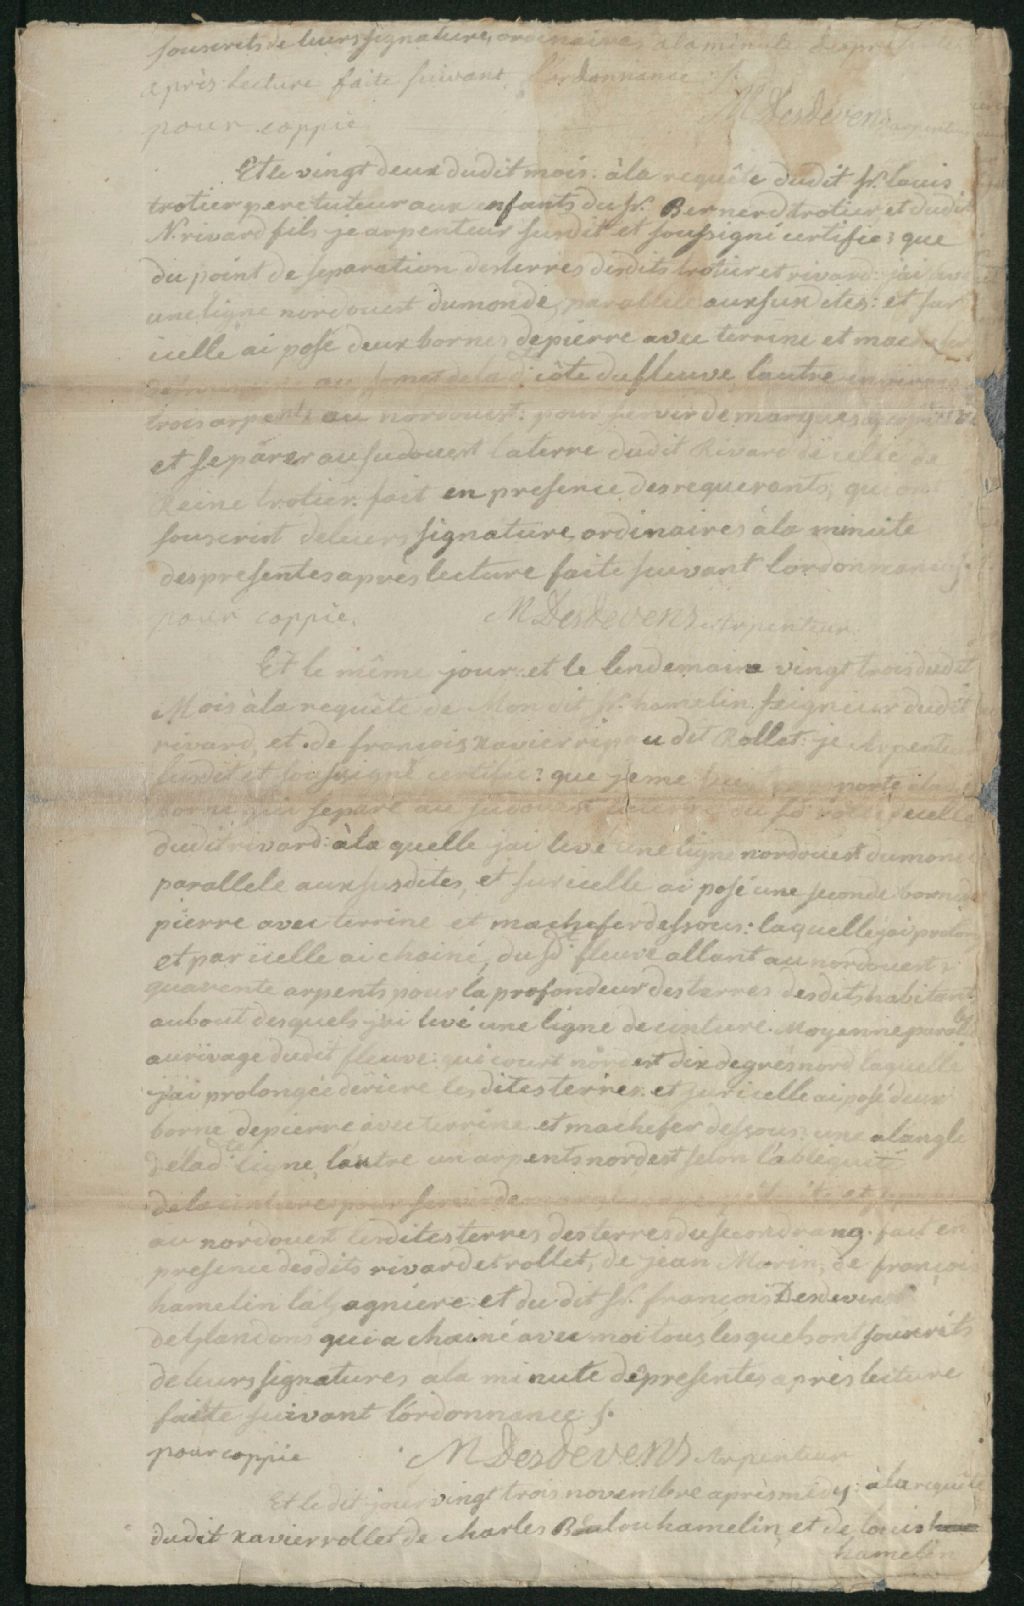 souscrits de leurs signature, ordinaires a la minute des presentes
après lecture faite suivant l'ordonnance ∫.
pour coppie M Desdevens arpenteur
Et le vingt deux dudit mois: à la requête dudit Sr. louis
trotier pere tuteur aux enfants du Sr. Bernerd trotier et dudit
N. rivard fils je arpenteur susdit et soussigné certifie: que
du point de separation des terres desdits trotier et rivard: j'ai
une ligne nordouest du monde, parallele aux susdites: et sur
icelle ai posé deux bornes de pierre avec terrine et machefer
côte du fleuve, lautre environs
trois arpents au nordouest: pour servir de marques
et separer au sudouest la terre dudit Rivard de icelle de
Reine trotier. fait en presence des requerants, qui ont
souscrist de leurs signature, ordinaires à la minute
des presentes après lecture faite suivant l'ordonnance ∫.
pour coppie. M Desdevens Arpenteur
Et le même jour et le lendemain vingt trois dudit
Mois à la requête de Mon dit Sr. hamelin seigneur dudit
rivard, et de françois xavier ripau dit Rollet: je Arpenteur
susdit et soussigné certifie: que je me suis transporté à la
borne qui separe au sudouest la terre du Sd. rollet d'icelle
dudit rivard: à la quelle j'ai levé une ligne nordouest du monde
parallele aux susdites, et sur icelle ai posé une seconde borne de
pierre avec terrine et machefer dessous: laquelle j'ai prolongé
et par icelle ai chainé, du Sdt. fleuve allant au nordouest:
quarente arpents pour la profondeur des terres desdits habitants
au bout desquels j'ai levé une ligne de ceinture Moyenne parallele
au rivage dudit fleuve: qui court nordest dix degrés nord laquelle
j'ai prolongée deriere les dites terres et sur icelle ai posé deux
borne de pierre avec terrine et machefer dessous: une a l'angle
de lad.te ligne lautre un arpents nordest selon lobliquité
de la ceinture pour servir de marques
au nordouest lesdites terres des terres du second rang. fait en
presence desdits rivard et rollet, de jean Morin, de françois
hamelin la Gagniere et du dit Sr. françois Desdevens
de Glandons qui a chainé avec moi tous lesquels ont souscrits
de leurs signatures a la minute de presentes après lecture
faite suivant l'ordonnance ∫.
pour coppie M Desdevens Arpenteur
Et le dit jour vingt trois novembre après midy: à la requête
dudit xavier rollet de charles hamelin et de louis
hamelin